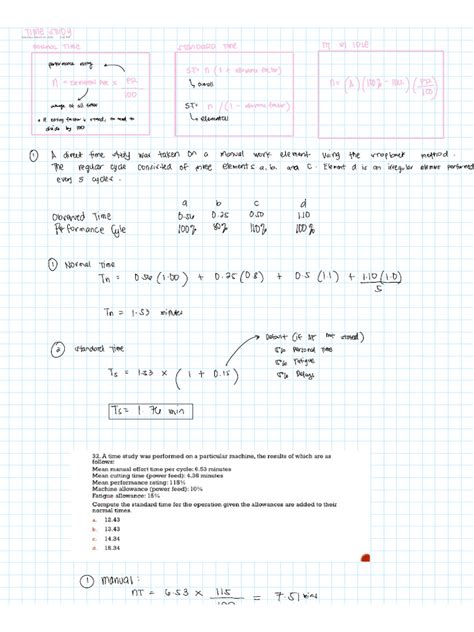 TIME STUDY
NORMAL TIME
STANDARD TIME
performance rating
n = observed time × PR / 100
average of all times
ST = n (1 + allowance factor)
↳ overall
ST = n / (1 - allowance factor)
↳ elemental
• if rating factor is stated, no need to
divide by 100
① A direct time study was taken on a manual work element using the snapback method.
The regular cycle consisted of three elements a, b, and c. Element d is an irregular element performed
every 5 cycles.
a b c d
Observed Time 0.56 0.25 0.50 1.10
Performance Cycle 100% 80% 110% 100%
① Normal Time
Tn = 0.56 (1.00) + 0.25 (0.8) + 0.5 (1.1) + 1.10 (1.0) / 5
Tn = 1.53 minutes
② standard Time
→ Default (if not stated)
5% Personal Time
5% Fatigue
5% Delays
Ts = 1.53 × (1 + 0.15)
Ts = 1.76 min
32. A time study was performed on a particular machine, the results of which are as
follows:
Mean manual effort time per cycle: 6.53 minutes
Mean cutting time (power feed): 4.36 minutes
Mean performance rating: 115%
Machine allowance (power feed): 10%
Fatigue allowance: 15%
Compute the standard time for the operation given the allowances are added to their
normal times.
a. 12.43
b. 13.43
c. 14.34
d. 18.34
① manual:
NT = 6.53 × 115 / 100 = 7.51 mins